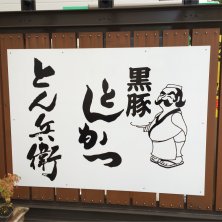 黒豚
とんかつ
とん兵衛